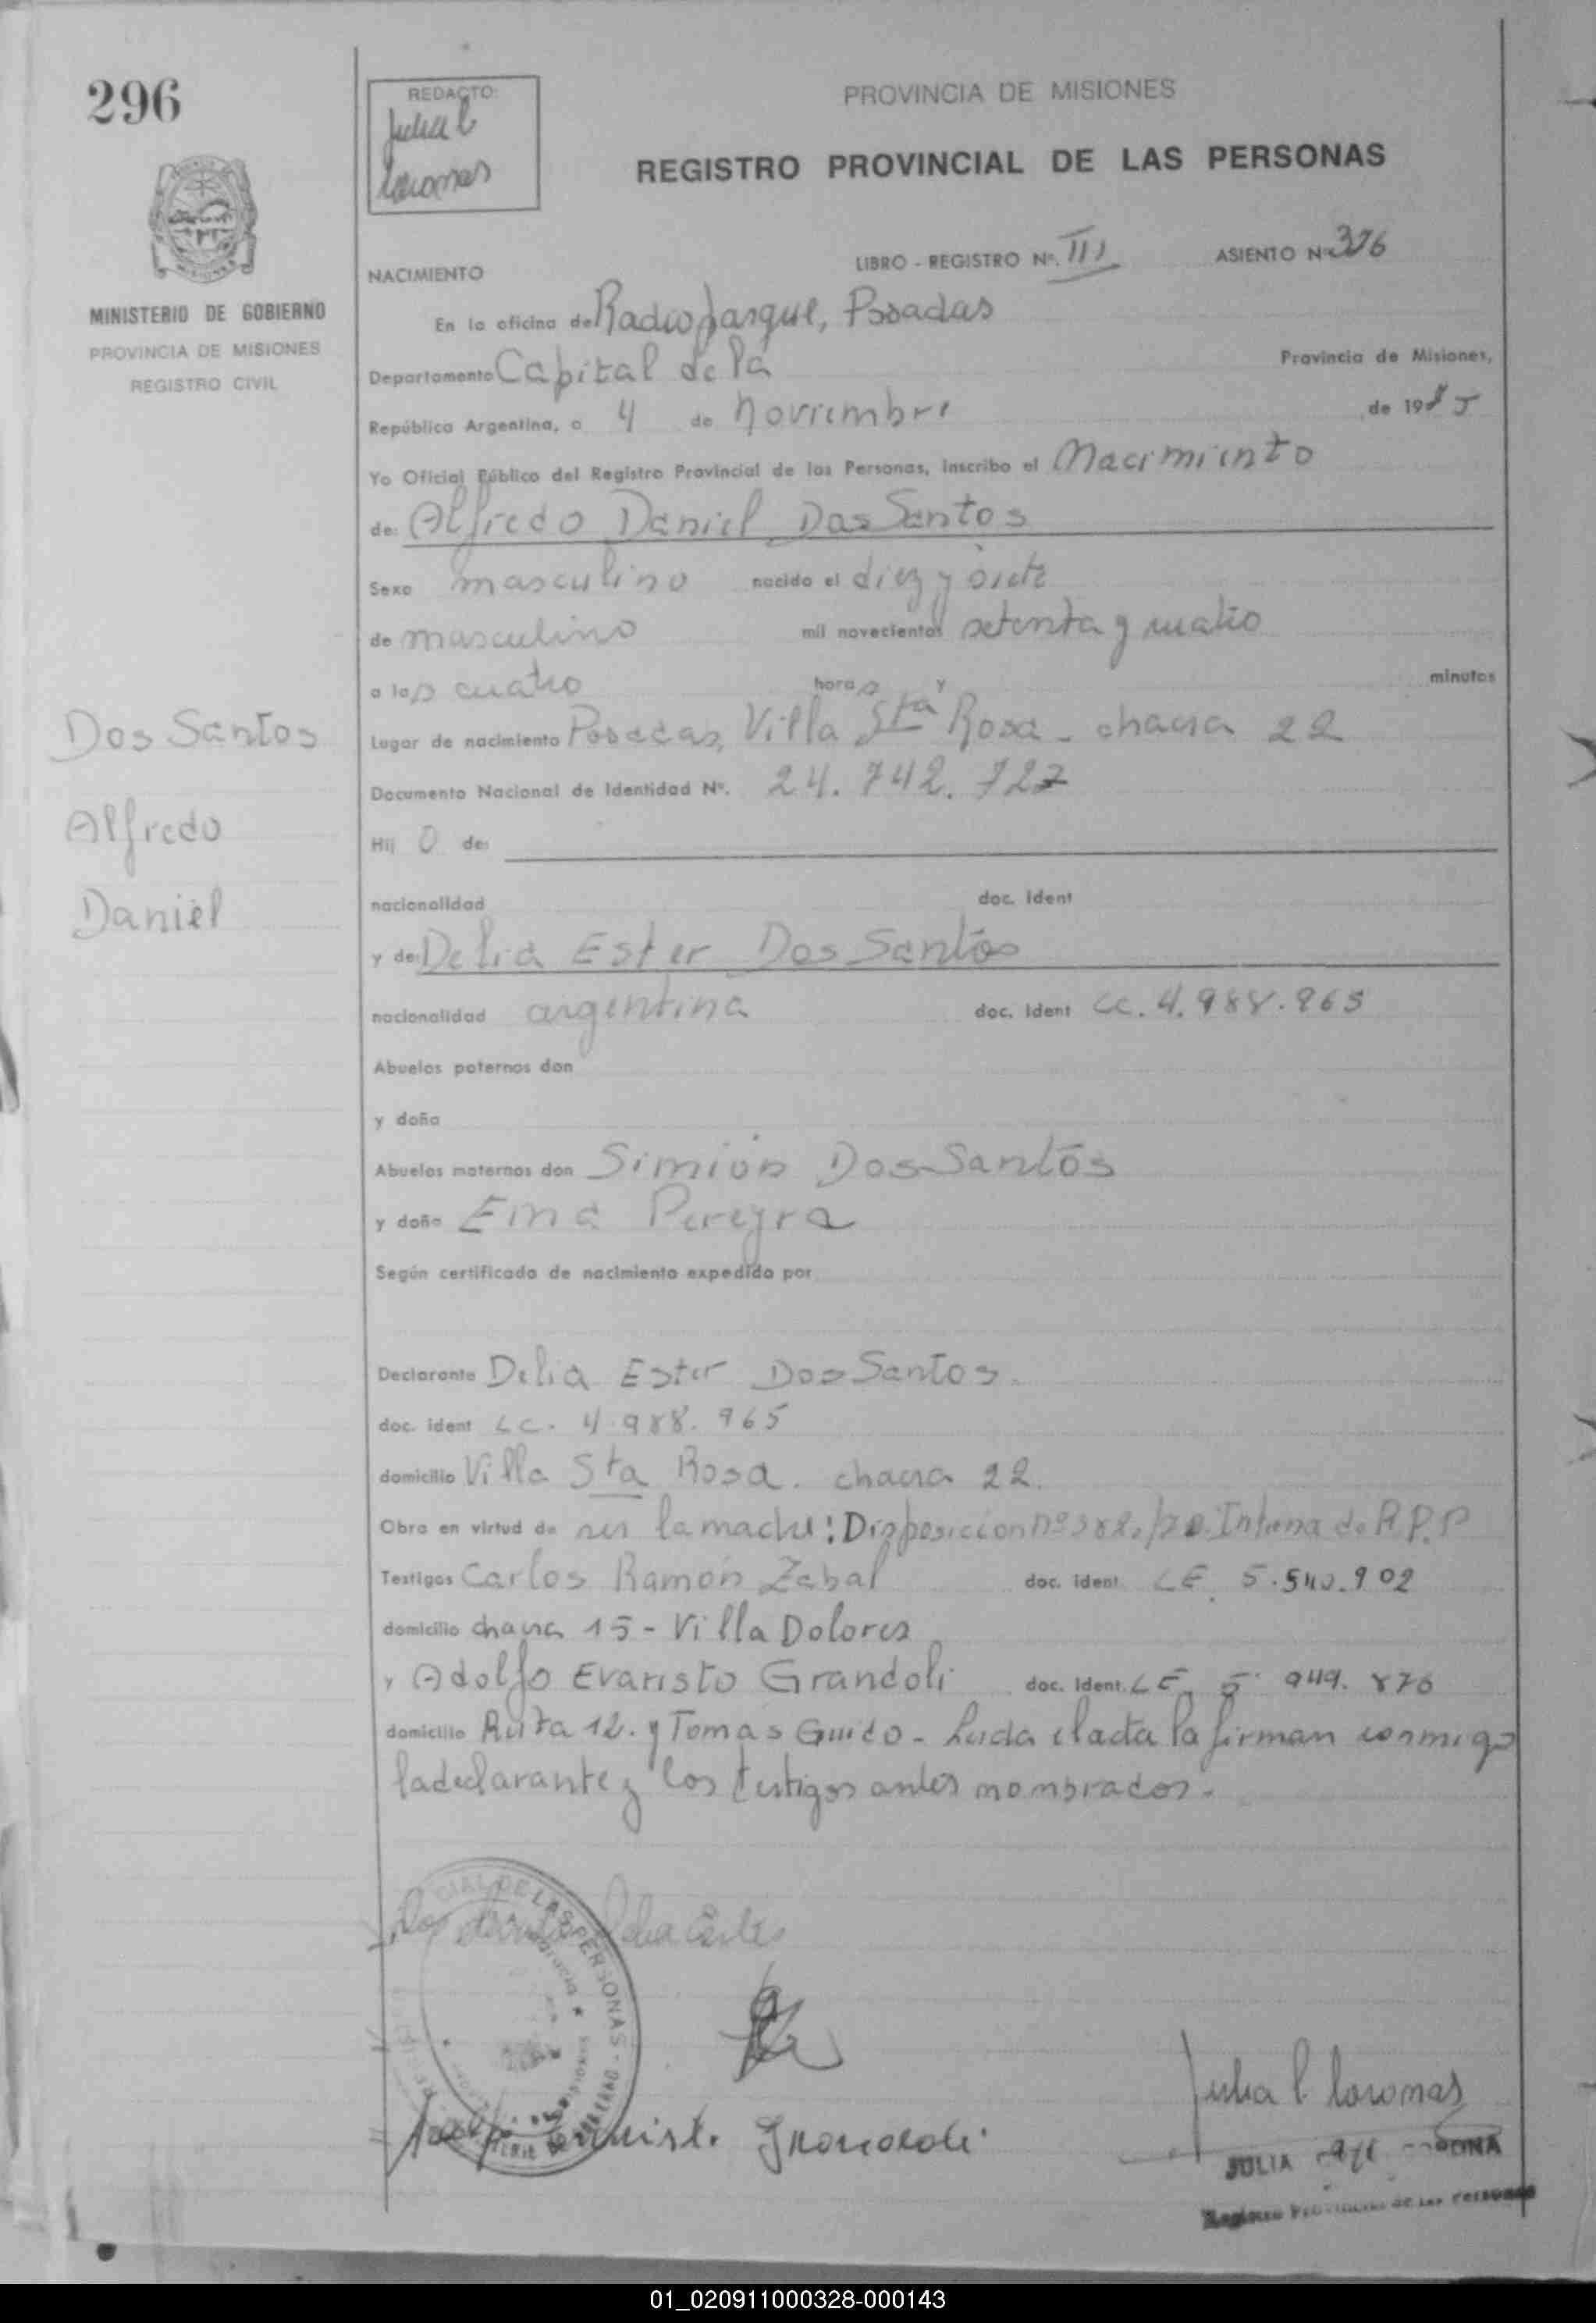 296
REDACTO:
Julia C
PROVINCIA DE MISIONES
REGISTRO PROVINCIAL DE LAS PERSONAS
LIBRO - REGISTRO Nº. III ASIENTO Nº 376
NACIMIENTO
MINISTERIO DE GOBIERNO
PROVINCIA DE MISIONES
REGISTRO CIVIL
En la oficina de Radio Parque, Posadas
Departamento Capital de la Provincia de Misiones,
República Argentina, a 4 de Noviembre de 1985
Yo Oficial Público del Registro Provincial de las Personas, inscribo el Nacimiento
de: Alfredo Daniel Dos Santos
Sexo masculino nacido el diez y siete
de masculino mil novecientos setenta y cuatro
a las cuatro horas y minutos
Dos Santos
Alfredo
Daniel
Lugar de nacimiento Posadas, Villa Sta Rosa - chacra 22
Documento Nacional de Identidad Nº. 24.742.727
Hij o de:
nacionalidad doc. Ident
y de: Delia Ester Dos Santos
nacionalidad argentina doc. Ident LC. 4.988.965
Abuelos paternos don
y doña
Abuelos maternos don Simión Dos Santos
y doña Ema Pereyra
Según certificado de nacimiento expedido por
Declarante Delia Ester Dos Santos.
doc. ident LC. 4.988.965
domicilio Villa Sta Rosa. chacra 22.
Obra en virtud de ser la madre: Disposición nº Interna de R.P.P
Testigos Carlos Ramón Zabal doc. ident. LE. 5.540.902
domicilio chacra 15 - Villa Dolores
y Adolfo Evaristo Grandoli doc. Ident. LE. 5.949.876
domicilio Ruta 12. y Tomas Guido - Leida el acta la firman conmigo
la declarante y los testigos antes nombrados.
DE LAS PERSONAS
Julia C
JULIA
Registro Provincial de las Personas
01_020911000328-000143